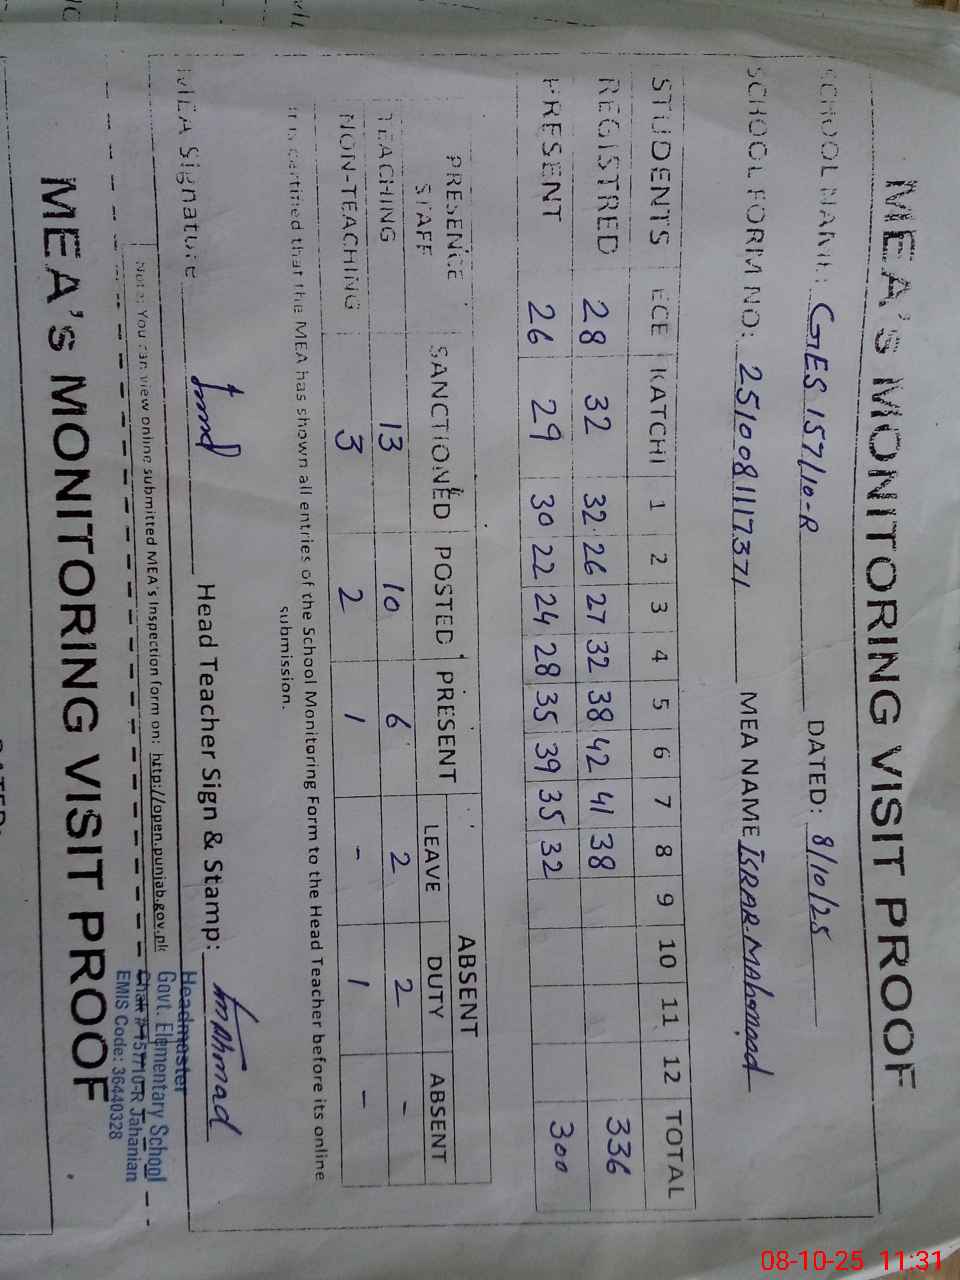 MEA's MONITORING VISIT PROOF
SCHOOL NAME: GES 157/10-R DATED: 8/10/25
SCHOOL FORM NO: 2510081117371 MEA NAME ISRAR Mahmood
STUDENTS ECE KATCHI 1 2 3 4 5 6 7 8 9 10 11 12 TOTAL
REGISTRED 28 32 32 26 27 32 38 42 41 38 336
PRESENT 26 29 30 22 24 28 35 39 35 32 300
PRESENCE STAFF SANCTIONED POSTED PRESENT ABSENT
LEAVE DUTY ABSENT
TEACHING 13 10 6 2 2 -
NON-TEACHING 3 2 1 - 1 -
It is certified that the MEA has shown all entries of the School Monitoring Form to the Head Teacher before its online
submission.
MEA Signature Head Teacher Sign & Stamp:
Headmaster
Govt. Elementary School
Chak # 157/10-R Jahanian
EMIS Code: 36440328
Note: You can view online submitted MEA's Inspection form on: http://open.punjab.gov.pk
MEA's MONITORING VISIT PROOF
08-10-25 11:31